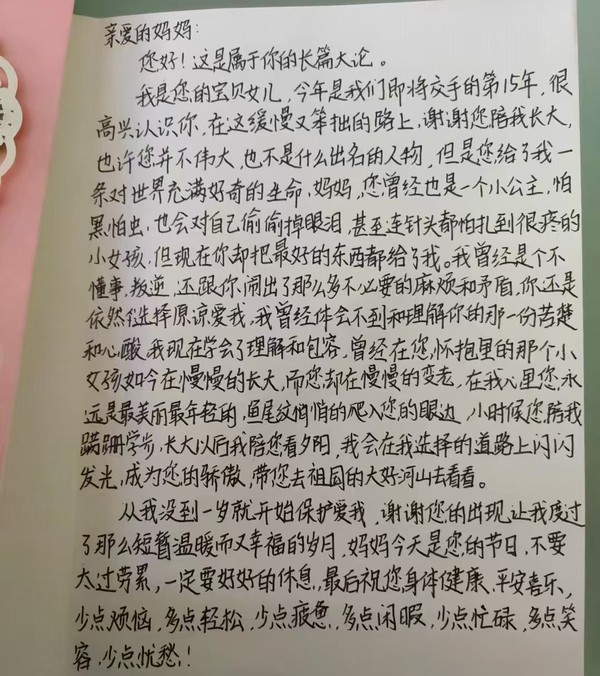 亲爱的妈妈:
您好!这是属于你的长篇大论。
我是您的宝贝女儿,今年是我们即将交手的第15年,很
高兴认识你,在这缓慢又笨拙的路上,谢谢您陪我长大,
也许您并不伟大,也不是什么出名的人物,但是您给了我一
条对世界充满好奇的生命,妈妈,您曾经也是一个小公主,怕
黑怕虫,也会对自己偷偷掉眼泪,甚至连针头都怕扎到很疼的
小女孩,但现在你却把最好的东西都给了我。我曾经是个不
懂事,叛逆,还跟你闹出了那么多不必要的麻烦和矛盾,你还是
依然选择原谅爱我,我曾经体会不到和理解你的那一份苦楚
和心酸,我现在学会了理解和包容,曾经在您怀抱里的那个小
女孩如今在慢慢的长大,而您却在慢慢的变老,在我心里您永
远是最美丽最年轻的,鱼尾纹悄悄的爬入您的眼边,小时候您陪我
蹒跚学步,长大以后我陪您看夕阳,我会在我选择的道路上闪闪
发光,成为您的骄傲,带您去祖国的大好河山去看看。
从我没到一岁就开始保护爱我,谢谢您的出现让我度过
了那么短暂温暖而又幸福的岁月,妈妈今天是您的节日,不要
太过劳累,一定要好好的休息,最后祝您身体健康、平安喜乐,
少点烦恼,多点轻松,少点疲惫,多点闲暇,少点忙碌,多点笑
容,少点忧愁!